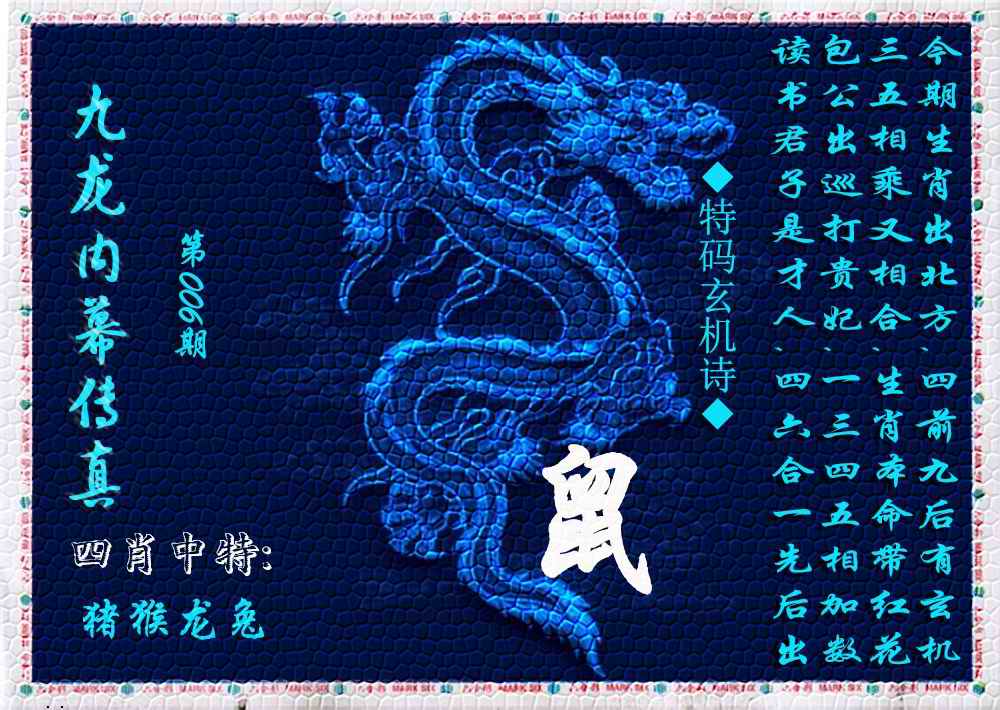 今期生肖出北方、四前九后有玄机
三五相乘又相合、生肖本命带红花
包公出巡打贵妃、一三四五相加数
读书君子是才人、四六合一先后出
◆特码玄机诗◆
第006期
九龙内幕传真
鼠
四肖中特:
猪猴龙兔